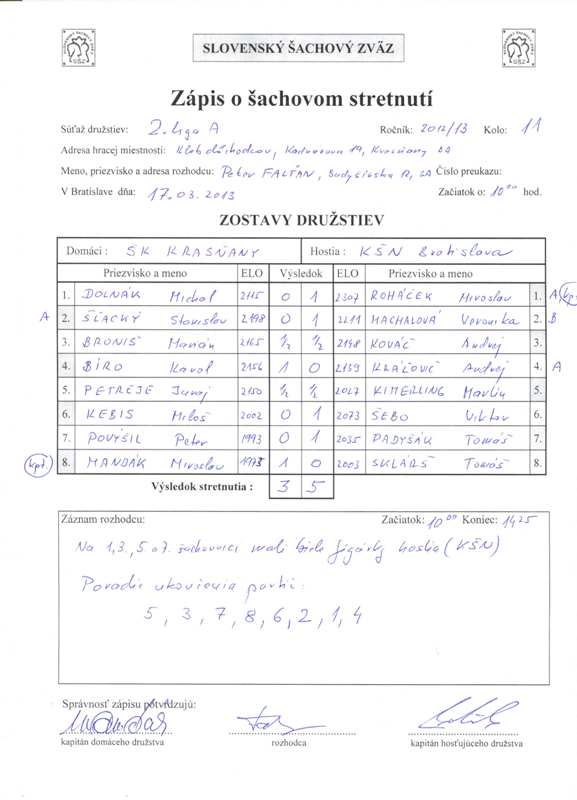 SLOVENSKÝ ŠACHOVÝ ZVÄZ
Zápis o šachovom stretnutí
Súťaž družstiev: 2. liga A Ročník: 2012/13 Kolo: 11
Adresa hracej miestnosti: Klub dôchodcov, Kadnárova 19, Krasňany BA
Meno, priezvisko a adresa rozhodcu: Peter FALŤAN, BA Číslo preukazu:
V Bratislave dňa: 17.03.2013 Začiatok o: 10 00 hod.
ZOSTAVY DRUŽSTIEV
Domáci : ŠK KRASŇANY Hostia : KŠN Bratislava
Priezvisko a meno ELO Výsledok ELO Priezvisko a meno
1. DOLNÁK Michal 2115 0 1 2307 ROHÁČEK Miroslav 1. A kpt
A 2. ŠĽACKÝ Stanislav 2198 0 1 2211 MACHALOVÁ Veronika 2. B
3. BRONIŠ Marián 2165 ½ ½ 2148 KOVÁČ Andrej 3.
4. BÍRO Karol 2156 1 0 2159 KRÁĽOVIČ Andrej 4. A
5. PETREJE Juraj 2150 ½ ½ 2027 KIMERLING Martin 5.
6. KEBIS Miloš 2002 0 1 2073 ŠEBO Viktor 6.
7. POVÝŠIL Peter 1993 0 1 2035 DADYŠÁK Tomáš 7.
kpt. 8. MANDÁK Miroslav 1973 1 0 2003 SKLÁRŠ Tomáš 8.
Výsledok stretnutia : 3 5
Záznam rozhodcu: Začiatok: 10 00 Koniec: 14 25
Na 1,3,5 a 7. šachovnici mali biele figúrky hostia (KŠN)
Poradie ukončenia partií:
5, 3, 7, 8, 6, 2, 1, 4
Správnosť zápisu potvrdzujú:
kapitán domáceho družstva rozhodca kapitán hosťujúceho družstva